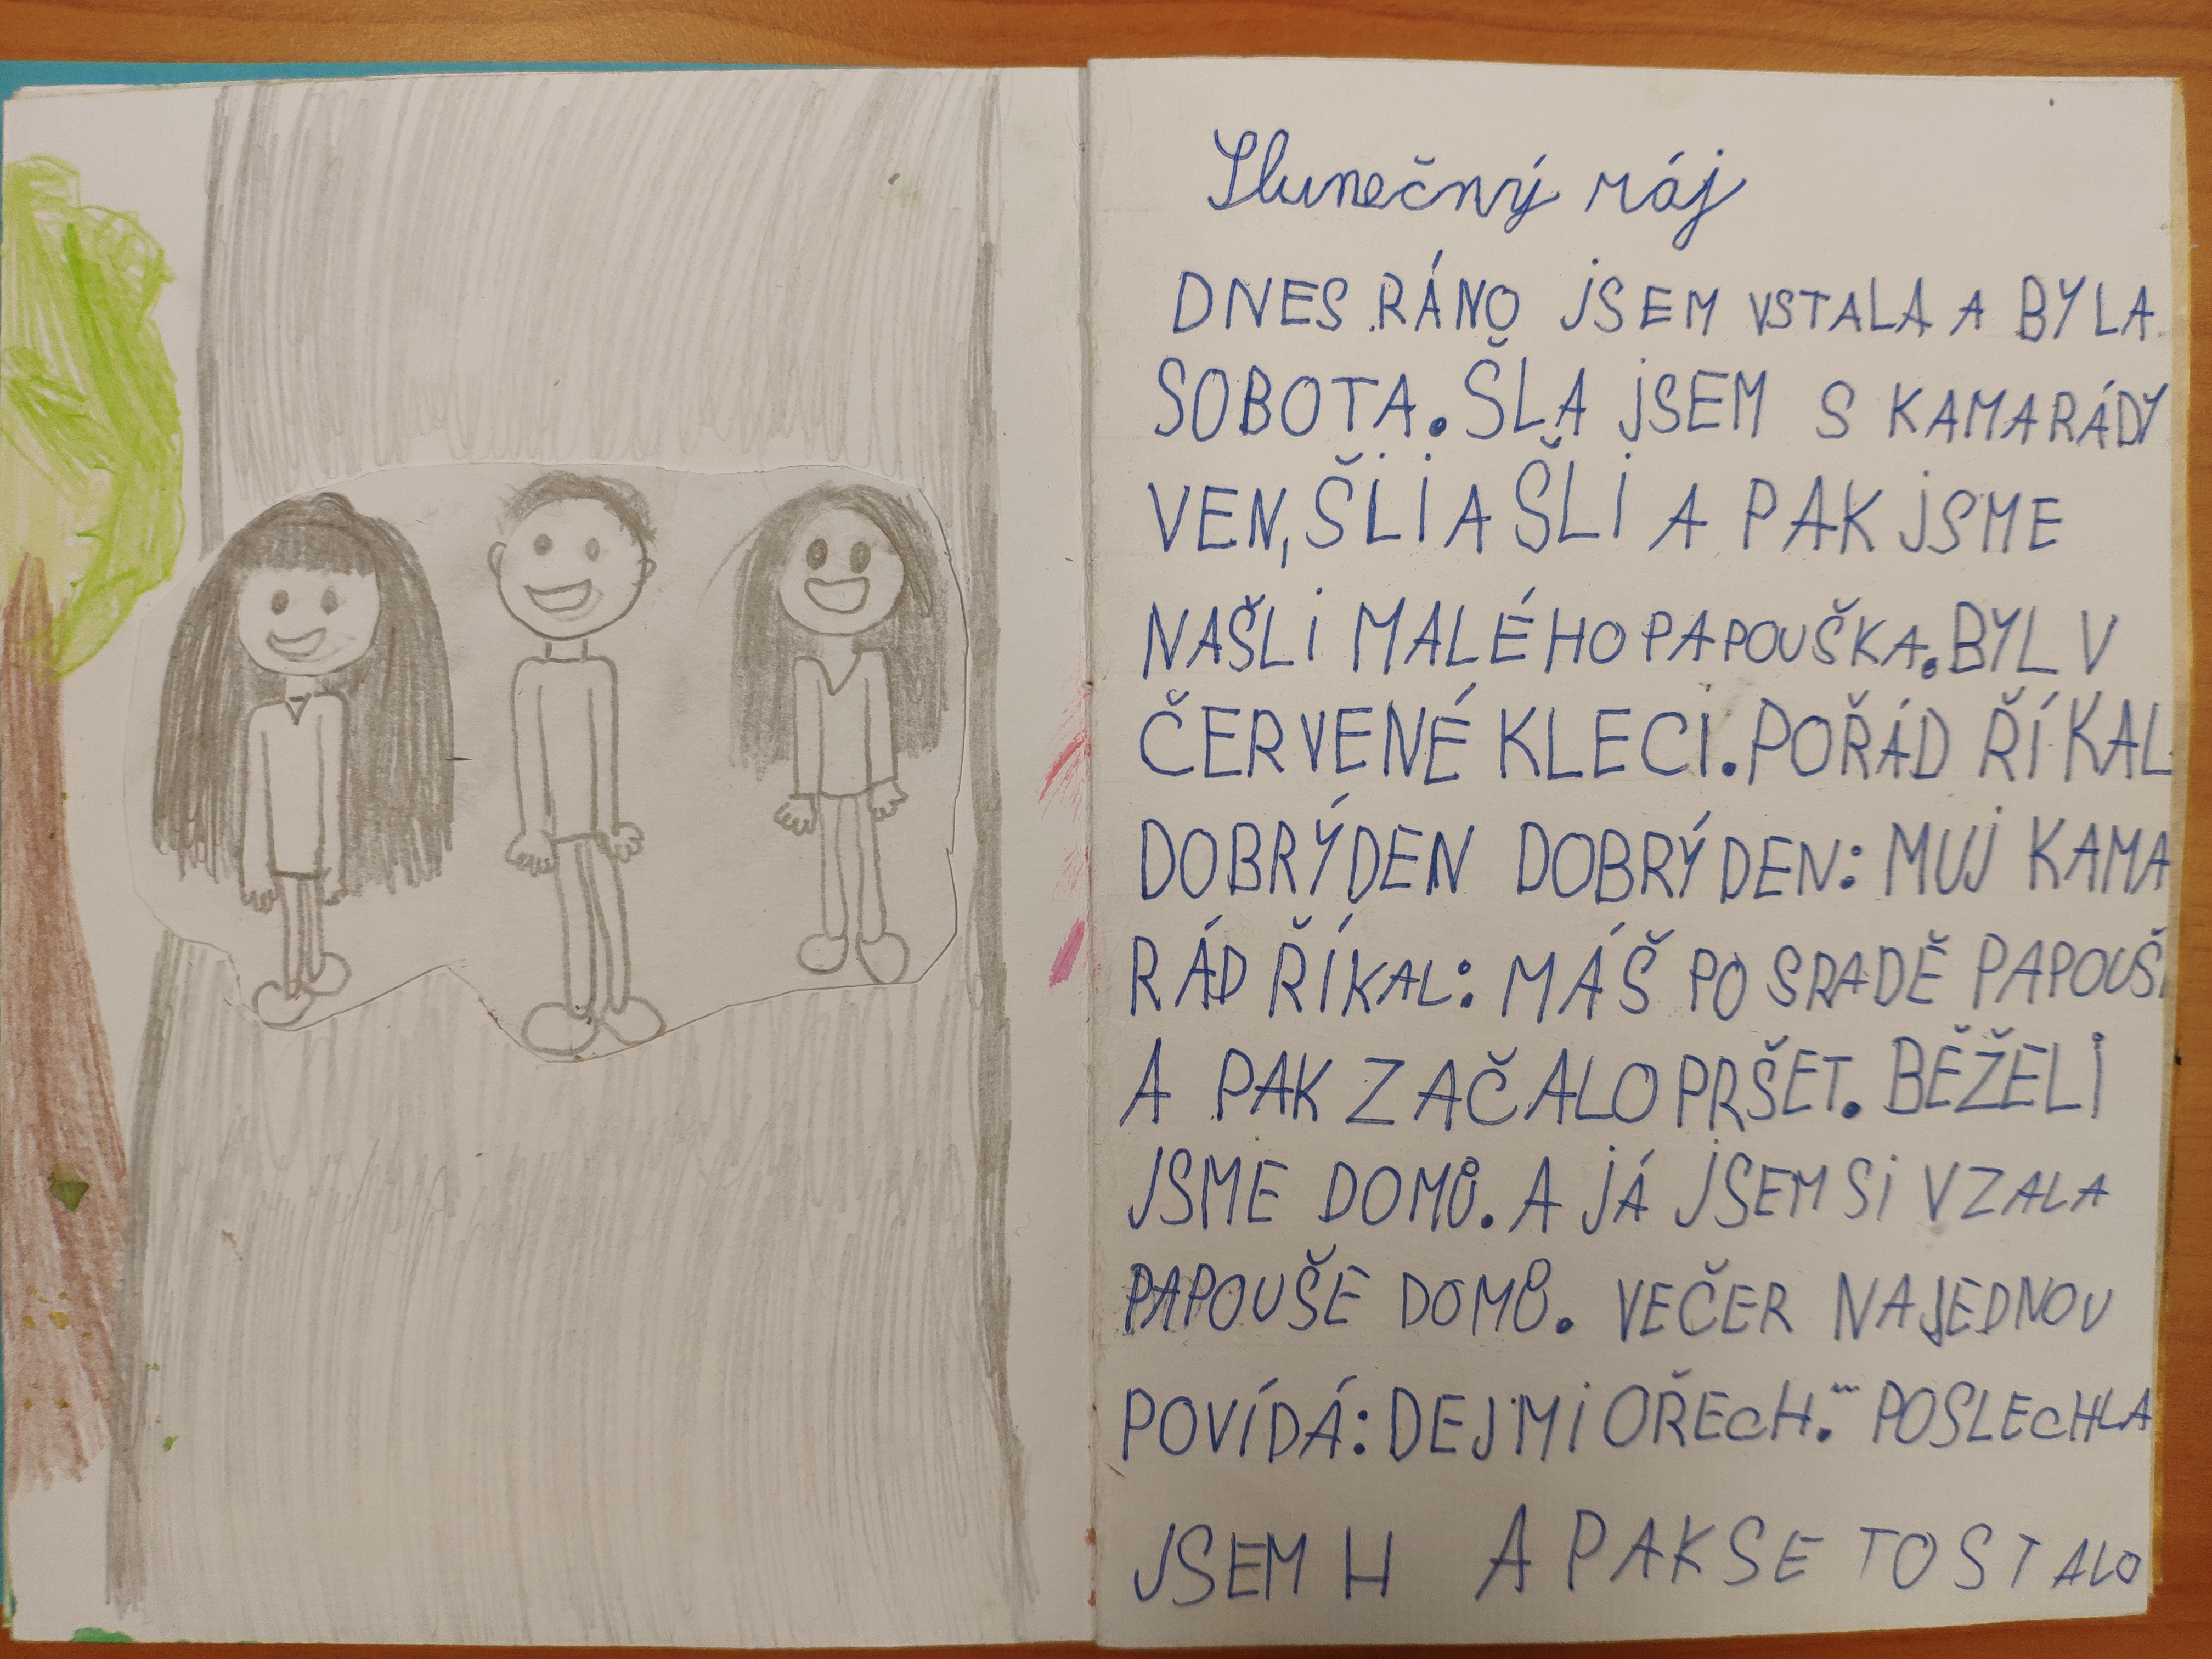 Slunečný ráj
DNES RÁNO JSEM VSTALA A BYLA
SOBOTA. ŠLA JSEM S KAMARÁDY
VEN, ŠLI A ŠLI A PAK JSME
NAŠLI MALÉHO PAPOUŠKA. BYL V
ČERVENÉ KLECI. POŘÁD ŘÍKAL
DOBRÝDEN DOBRÝDEN: MUJ KAMA
RÁD ŘÍKAL: MÁŠ PO SRADĚ PAPOUŠ
A PAK ZAČALO PRŠET. BĚŽELI
JSME DOMŮ. A JÁ JSEM SI VZALA
PAPOUŠE DOMŮ. VEČER NAJEDNOU
POVÍDÁ: DEJ MI OŘECH." POSLECHLA
JSEM H A PAK SE TO STALO